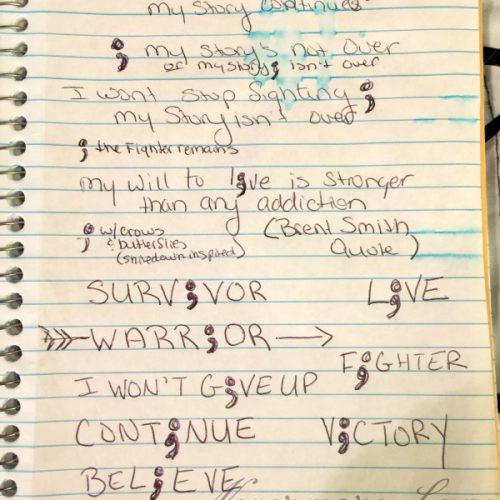 my story continues
; my story's not over
or my story; isn't over
I wont stop fighting ;
my story isn't over
; the Fighter remains
my will to l;ve is stronger
than any addiction
(Brent Smith
Quote)
; w/crows
& butterflies
(shinedown inspired)
SURV;VOR L;VE
WARR;OR
F;GHTER
I WON'T G;VE UP
CONT;NUE V;CTORY
BEL;EVE